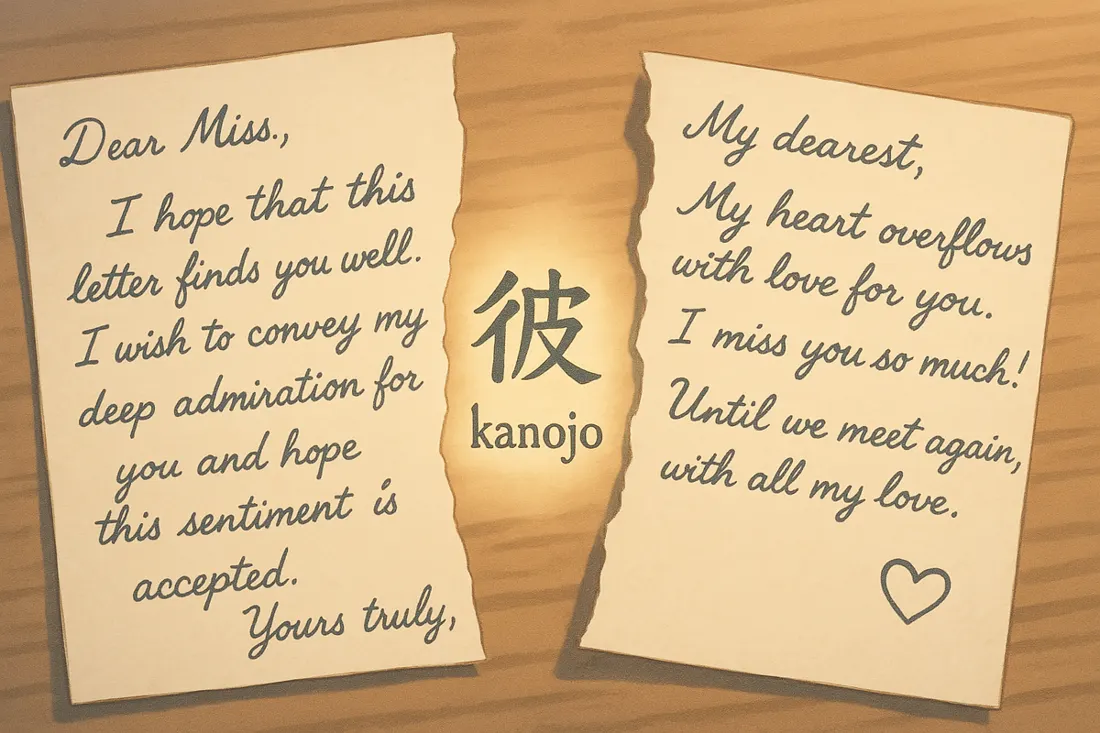 Dear Miss.,
I hope that this
letter finds you well.
I wish to convey my
deep admiration for
you and hope
this sentiment is
accepted.
Yours truly,
彼
kanojo
My dearest,
My heart overflows
with love for you.
I miss you so much!
Until we meet again,
with all my love.